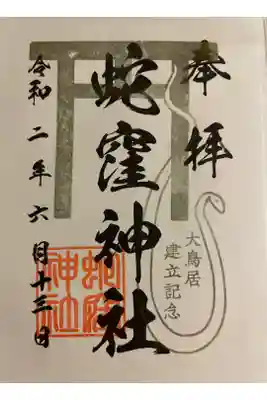 奉拝
大鳥居
建立記念
蛇窪神社
令和二年六月十三日
蛇窪
神社